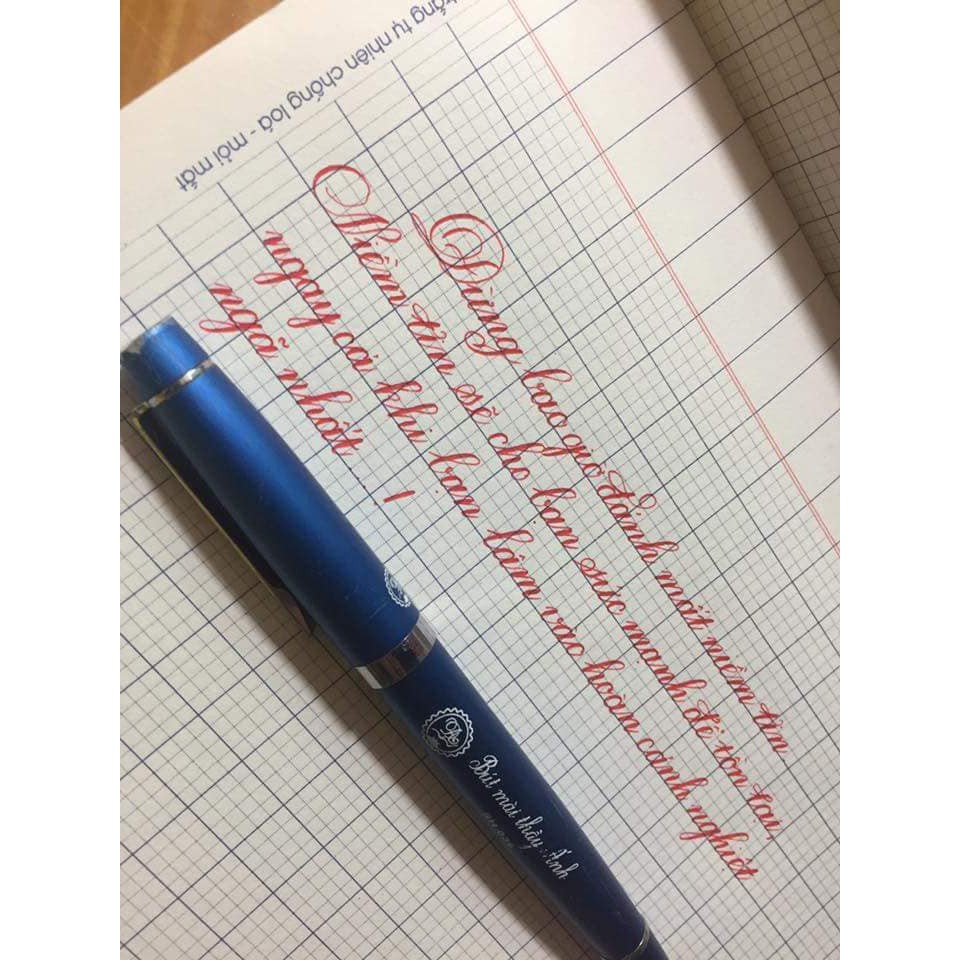 trắng tự nhiên chống loá - mỏi mắt
Đừng bao giờ đánh mất niềm tin
Niềm tin sẽ cho bạn sức mạnh để tồn tại,
ngay cả khi bạn lâm vào hoàn cảnh nghiệt
ngã nhất !
Bút mài thầy Ánh